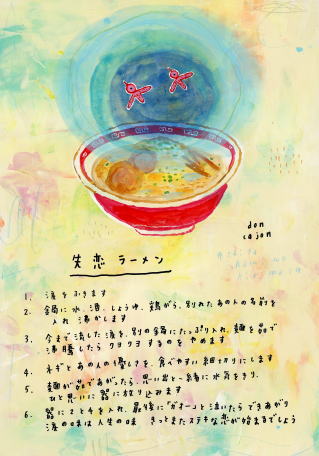 don
cajon
失恋 ラーメン
1. 涙をふきます
2. 鍋に水、酒、しょうゆ、鶏がら、別れたあの人の名前を
入れ 沸かします
3. 今まで流した涙を、別の鍋にたっぷり入れ、麺を茹で
沸騰したら クヨクヨするのを やめます
4. ネギとあの人の優しさを、食べやすい 細切りにします
5. 麺が茹であがったら、思い出と一緒に水気をきり、
ひと思いに 器に放り込みます
6. 器に2と4を入れ、最後に"ガオー"と泣いたら できあがり
涙の味は人生の味 きっとまたステキな恋が始まるでしょう